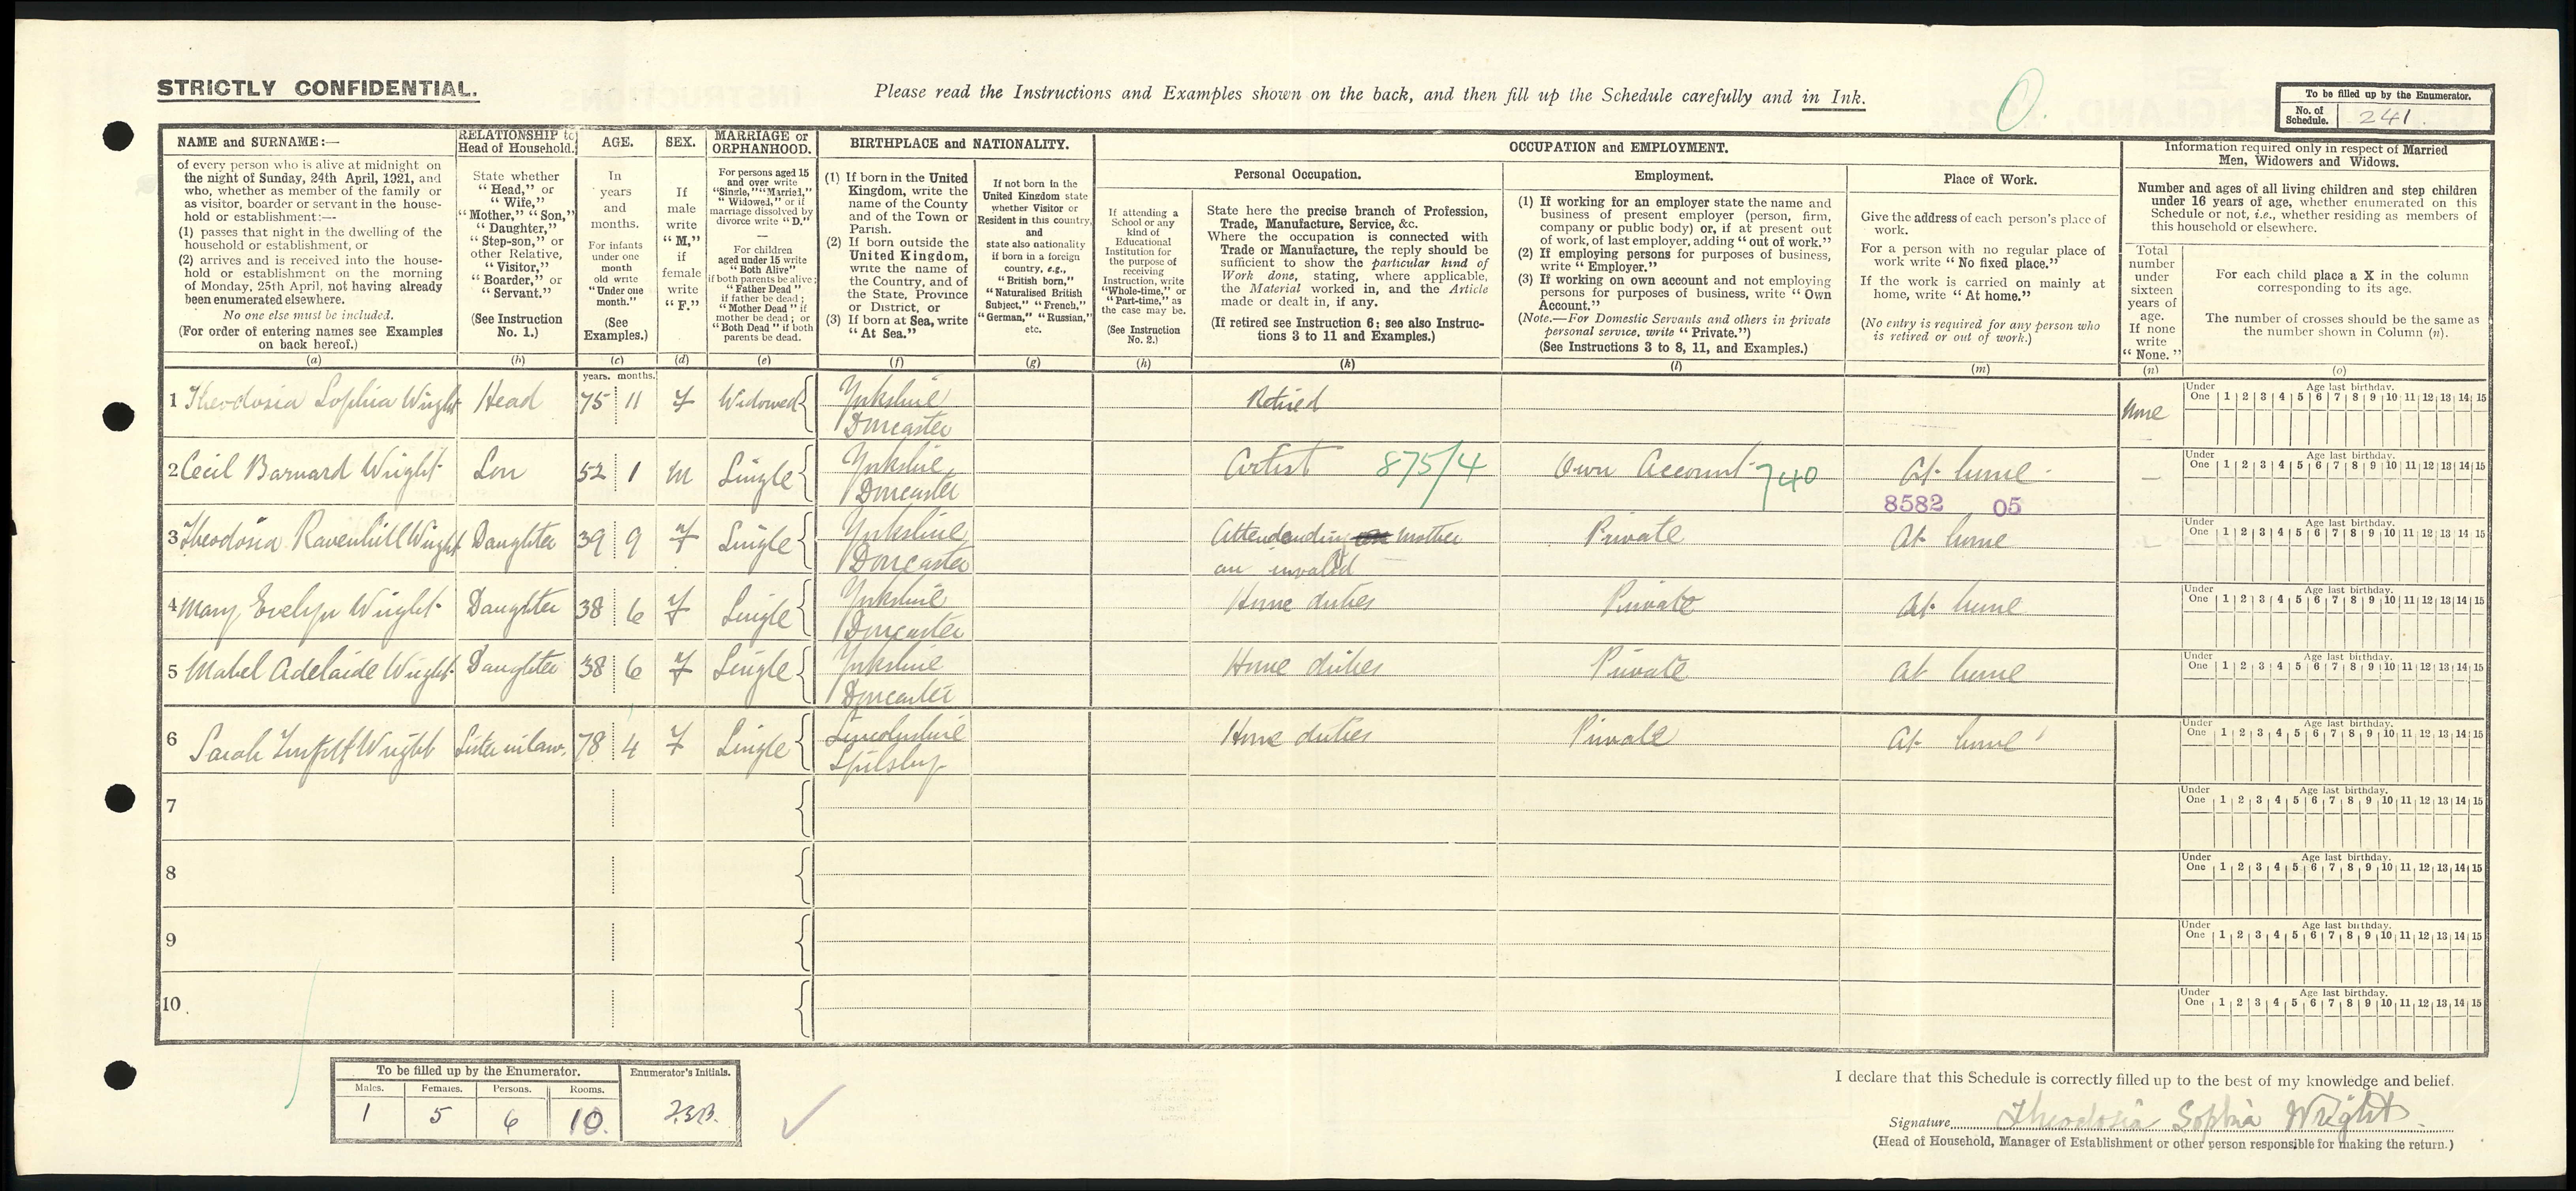 STRICTLY CONFIDENTIAL.
Please read the Instructions and Examples shown on the back, and then fill up the Schedule carefully and in Ink.
O.
To be filled up by the Enumerator.
No. of Schedule. 241.
NAME and SURNAME:—
of every person who is alive at midnight on
the night of Sunday, 24th April, 1921, and
who, whether as member of the family or
as visitor, boarder or servant in the house-
hold or establishment:—
(1) passes that night in the dwelling of the
household or establishment, or
(2) arrives and is received into the house-
hold or establishment on the morning
of Monday, 25th April, not having already
been enumerated elsewhere.
No one else must be included.
(For order of entering names see Examples
on back hereof.)
(a)
RELATIONSHIP to
Head of Household.
State whether
"Head," or
"Wife,"
"Mother," "Son,"
"Daughter,"
"Step-son," or
other Relative,
"Visitor,"
"Boarder," or
"Servant."
(See Instruction
No. 1.)
(b)
AGE.
In
years
and
months.
For infants
under one
month
old write
"Under one
month."
(See
Examples.)
(c)
years. months.
SEX.
If
male
write
"M,"
if
female
write
"F."
(d)
MARRIAGE or
ORPHANHOOD.
For persons aged 15
and over write
"Single," "Married,"
"Widowed," or if
marriage dissolved by
divorce write "D."
—
For children
aged under 15 write
"Both Alive"
if both parents be alive;
"Father Dead"
if father be dead;
"Mother Dead" if
mother be dead; or
"Both Dead" if both
parents be dead.
(e)
BIRTHPLACE and NATIONALITY.
(1) If born in the United
Kingdom, write the
name of the County
and of the Town or
Parish.
(2) If born outside the
United Kingdom,
write the name of
the Country, and of
the State, Province
or District, or
(3) If born at Sea, write
"At Sea."
(f)
If not born in the
United Kingdom state
whether Visitor or
Resident in this country,
and
state also nationality
if born in a foreign
country, e.g.,
"British born,"
"Naturalised British
Subject," "French,"
"German," "Russian,"
etc.
(g)
OCCUPATION and EMPLOYMENT.
If attending a
School or any
kind of
Educational
Institution for
the purpose of
receiving
Instruction, write
"Whole-time," or
"Part-time," as
the case may be.
(See Instruction
No. 2.)
(h)
Personal Occupation.
State here the precise branch of Profession,
Trade, Manufacture, Service, &c.
Where the occupation is connected with
Trade or Manufacture, the reply should be
sufficient to show the particular kind of
Work done, stating, where applicable,
the Material worked in, and the Article
made or dealt in, if any.
(If retired see Instruction 6; see also Instruc-
tions 3 to 11 and Examples.)
(k)
Employment.
(1) If working for an employer state the name and
business of present employer (person, firm,
company or public body) or, if at present out
of work, of last employer, adding "out of work."
(2) If employing persons for purposes of business,
write "Employer."
(3) If working on own account and not employing
persons for purposes of business, write "Own
Account."
(Note.—For Domestic Servants and others in private
personal service, write "Private.")
(See Instructions 3 to 8, 11, and Examples.)
(l)
Place of Work.
Give the address of each person's place of
work.
For a person with no regular place of
work write "No fixed place."
If the work is carried on mainly at
home, write "At home."
(No entry is required for any person who
is retired or out of work.)
(m)
Information required only in respect of Married
Men, Widowers and Widows.
Number and ages of all living children and step children
under 16 years of age, whether enumerated on this
Schedule or not, i.e., whether residing as members of
this household or elsewhere.
Total
number
under
sixteen
years of
age.
If none
write
"None."
(n)
For each child place a X in the column
corresponding to its age.
The number of crosses should be the same as
the number shown in Column (n).
(o)
1 Theodosia Sophia Wright Head 75 11 F Widowed Yorkshire Doncaster Retired None
Under One Age last birthday. 1 2 3 4 5 6 7 8 9 10 11 12 13 14 15
2 Cecil Barnard Wright Son 52 1 M Single Yorkshire, Doncaster Artist 875/4 Own Account 740 At home
8582 05
Under One Age last birthday. 1 2 3 4 5 6 7 8 9 10 11 12 13 14 15
3 Theodosia Ravenhill Wright Daughter 39 9 F Single Yorkshire, Doncaster Attendending mother an invalid Private At home
Under One Age last birthday. 1 2 3 4 5 6 7 8 9 10 11 12 13 14 15
4 Mary Evelyn Wright Daughter 38 6 F Single Yorkshire Doncaster Home duties Private At home
Under One Age last birthday. 1 2 3 4 5 6 7 8 9 10 11 12 13 14 15
5 Mabel Adelaide Wright Daughter 38 6 F Single Yorkshire Doncaster Home duties Private At home
Under One Age last birthday. 1 2 3 4 5 6 7 8 9 10 11 12 13 14 15
6 Sarah Wright Sister in law. 78 4 F Single Lincolnshire Spilsby Home duties Private At home
Under One Age last birthday. 1 2 3 4 5 6 7 8 9 10 11 12 13 14 15
7
Under One Age last birthday. 1 2 3 4 5 6 7 8 9 10 11 12 13 14 15
8
Under One Age last birthday. 1 2 3 4 5 6 7 8 9 10 11 12 13 14 15
9
Under One Age last birthday. 1 2 3 4 5 6 7 8 9 10 11 12 13 14 15
10
Under One Age last birthday. 1 2 3 4 5 6 7 8 9 10 11 12 13 14 15
To be filled up by the Enumerator. Enumerator's Initials.
Males. Females. Persons. Rooms.
1 5 6 10.
I declare that this Schedule is correctly filled up to the best of my knowledge and belief.
Signature Theodosia Sophia Wright.
(Head of Household, Manager of Establishment or other person responsible for making the return.)